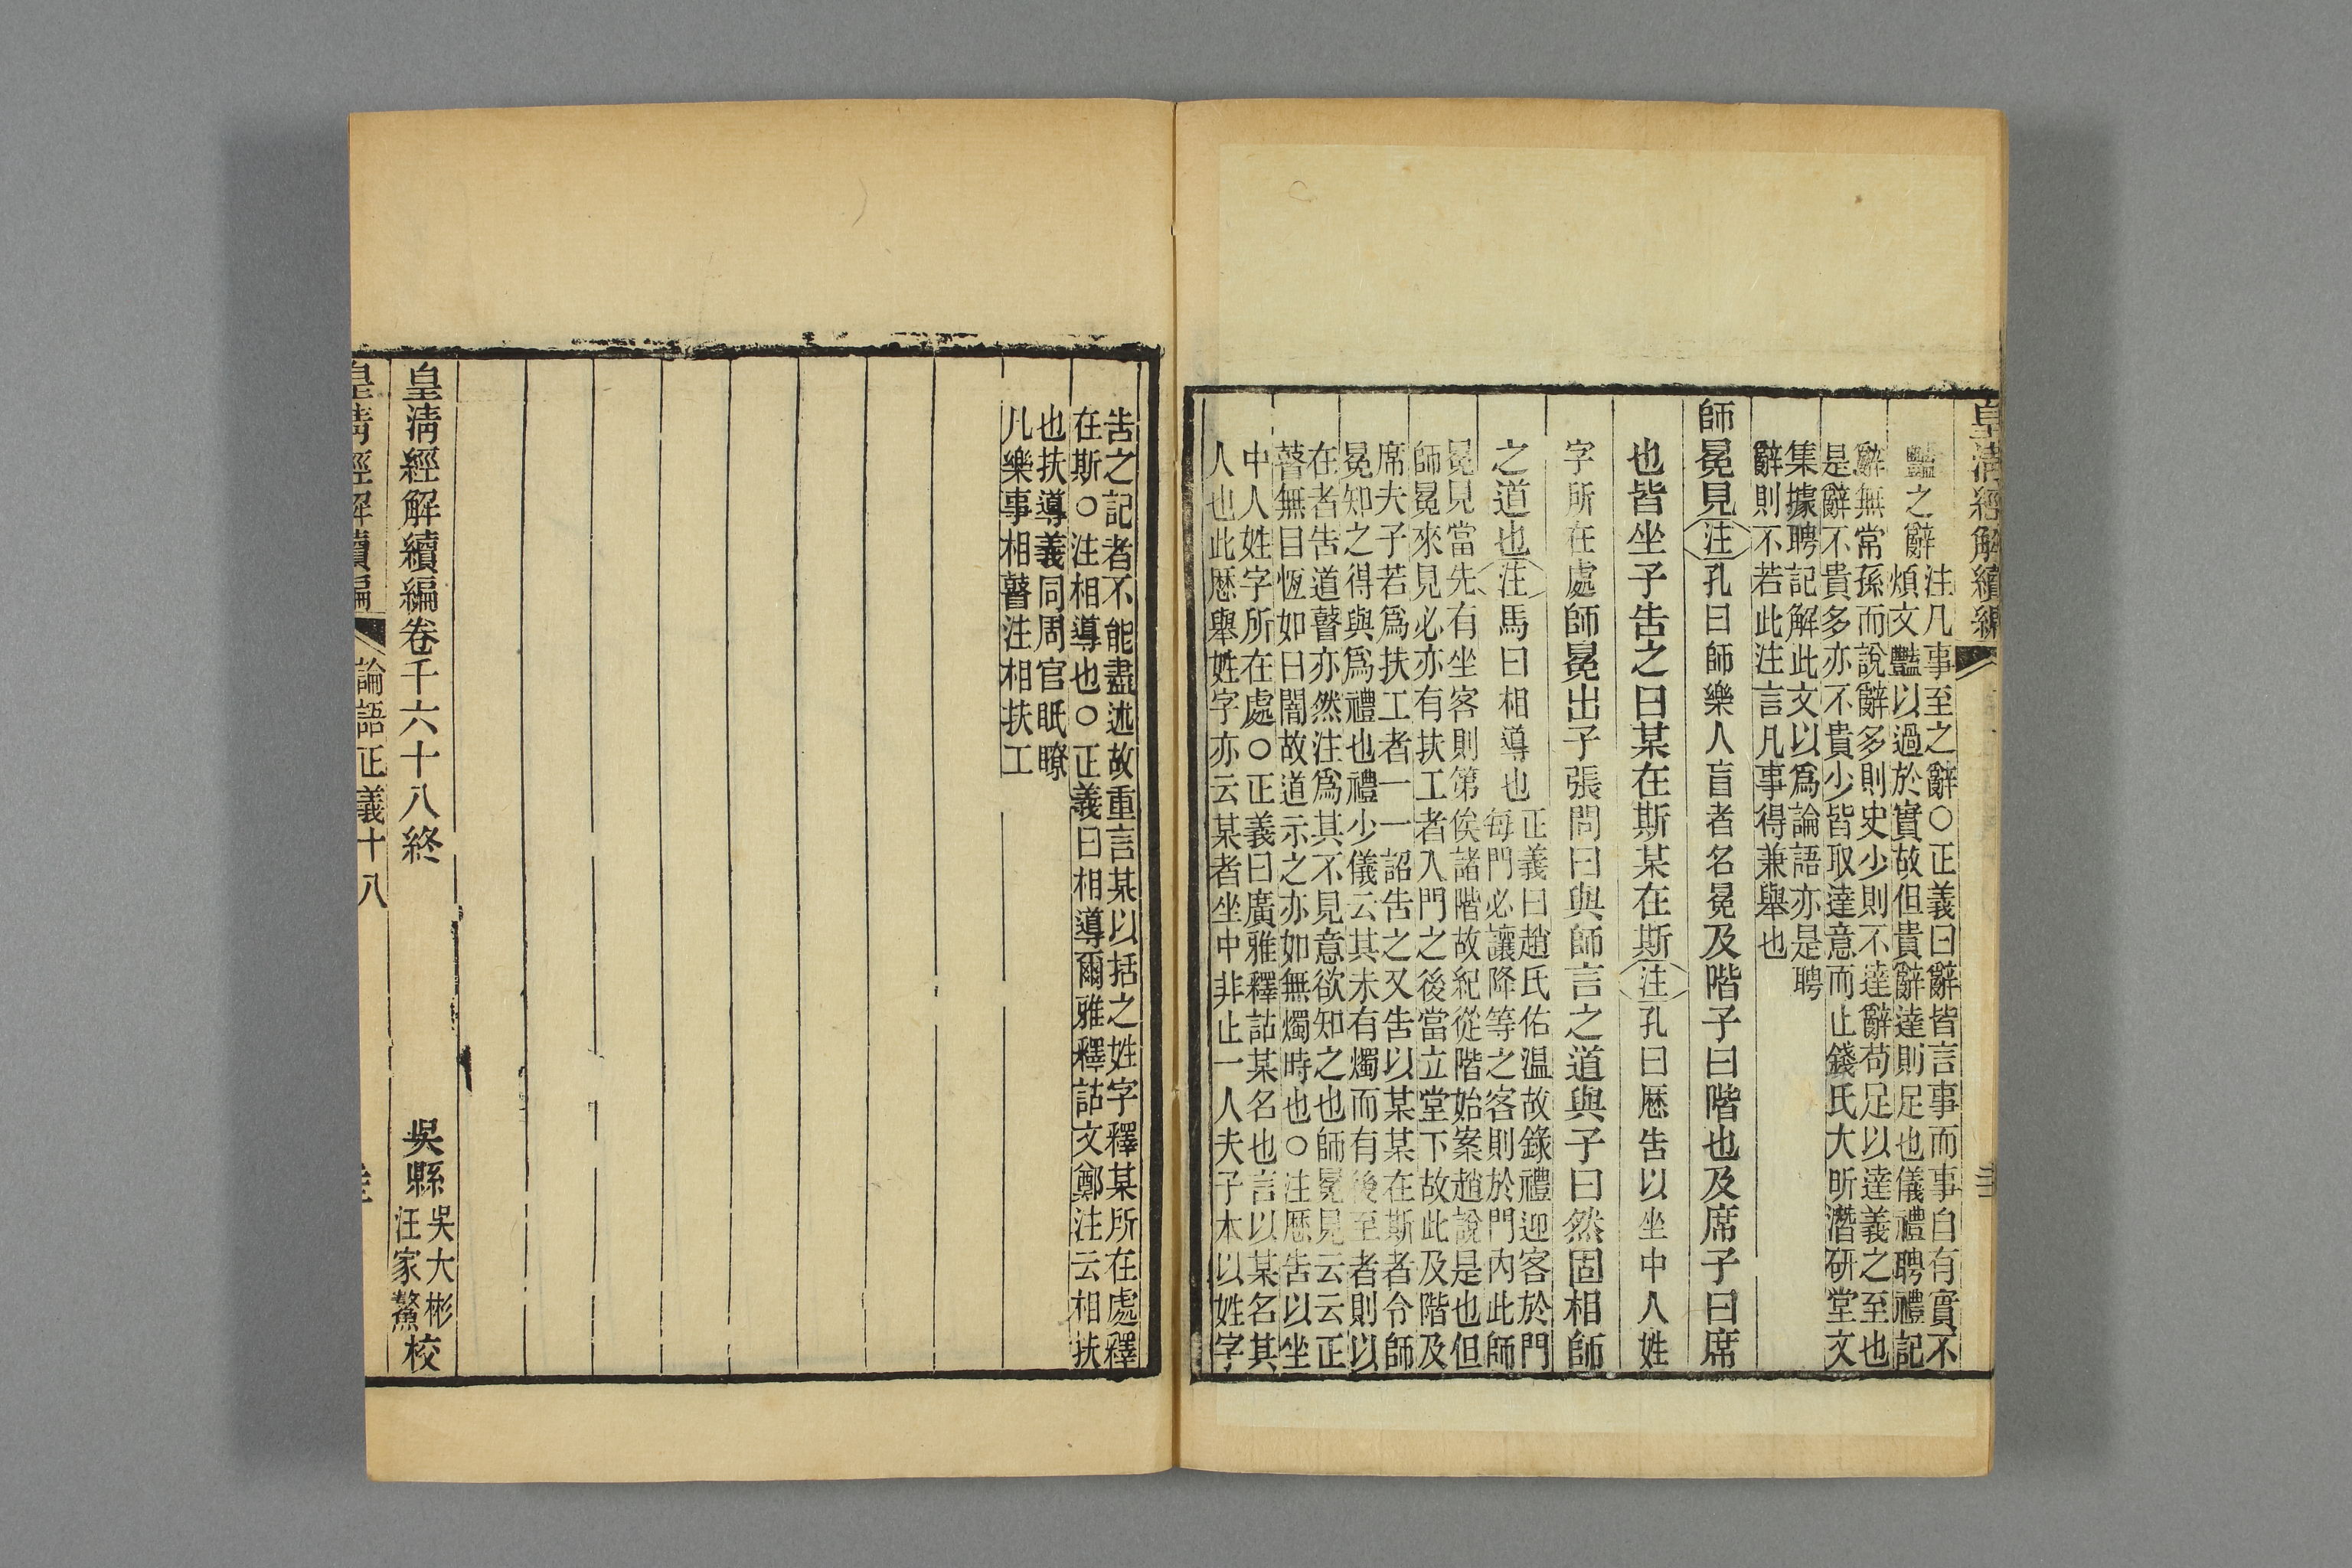 皇淸經解續編
豔之辭
注凡事至之辭○正義曰辭皆言事而事自有實不
煩文豔以過於實故但貴辭達則足也儀禮聘禮記
辭無常孫而說辭多則史少則不達辭苟足以達義之至也
是辭不貴多亦不貴少皆取達意而止錢氏大昕潛研堂文
集據聘記解此文以爲論語亦是聘
辭則不若此注言凡事得兼舉也
師冕見注孔曰師樂人盲者名冕及階子曰階也及席子曰席
也皆坐子告之曰某在斯某在斯注孔曰歷告以坐中人姓
字所在處師冕出子張問曰與師言之道與子曰然固相師
之道也注馬曰相導也
正義曰趙氏佑温故錄禮迎客於門
每門必讓降等之客則於門內此師
冕見當先有坐客則第俟諸階故紀從階始案趙說是也但
師冕來見必亦有扶工者入門之後當立堂下故此及階及
席夫子若爲扶工者一一詔告之又告以某某在斯者令師
冕知之得與爲禮也禮少儀云其未有燭而有後至者則以
在者告道瞽亦然注爲其不見意欲知之也師冕見云云正
瞽無目恆如日闇故道示之亦如無燭時也○注歷告以坐
中人姓字所在處○正義曰廣雅釋詁某名也言以某名其
人也此歷舉姓字亦云某者坐中非止一人夫子本以姓字
告之記者不能盡述故重言某以括之姓字釋某所在處釋
在斯○注相導也○正義曰相導爾雅釋詁文鄭注云相扶
也扶導義同周官眂瞭
凡樂事相瞽注相扶工
皇淸經解續編卷千六十八終
吳縣
吳大彬
汪家鰲
校
皇淸經解續編
論語正義十八